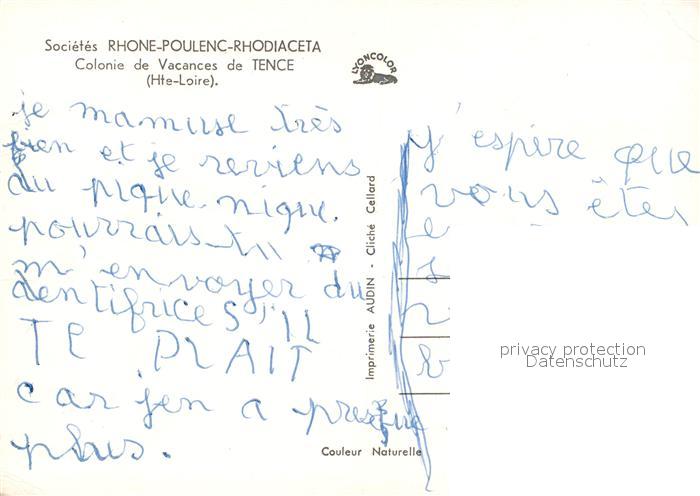 Sociétés RHONE-POULENC-RHODIACETA
Colonie de Vacances de TENCE
(Hte-Loire).
LYONCOLOR
je mamuse très
bien et je reviens
du pique-nique.
pourrais-tu
m'en voyer du
dentifrice S'IL
TE PLAIT
car jen a presque
plus.
j'espère que
vous êtes
e
s
n
b
Imprimerie AUDIN - Cliché Cellard
Couleur Naturelle
privacy protection
Datenschutz